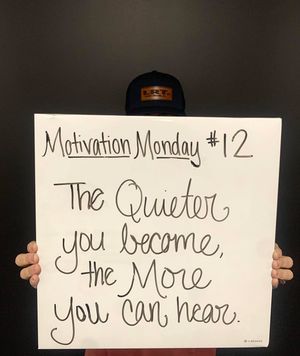 LRT
Motivation Monday #12
The Quieter
you become,
the More
you can hear.